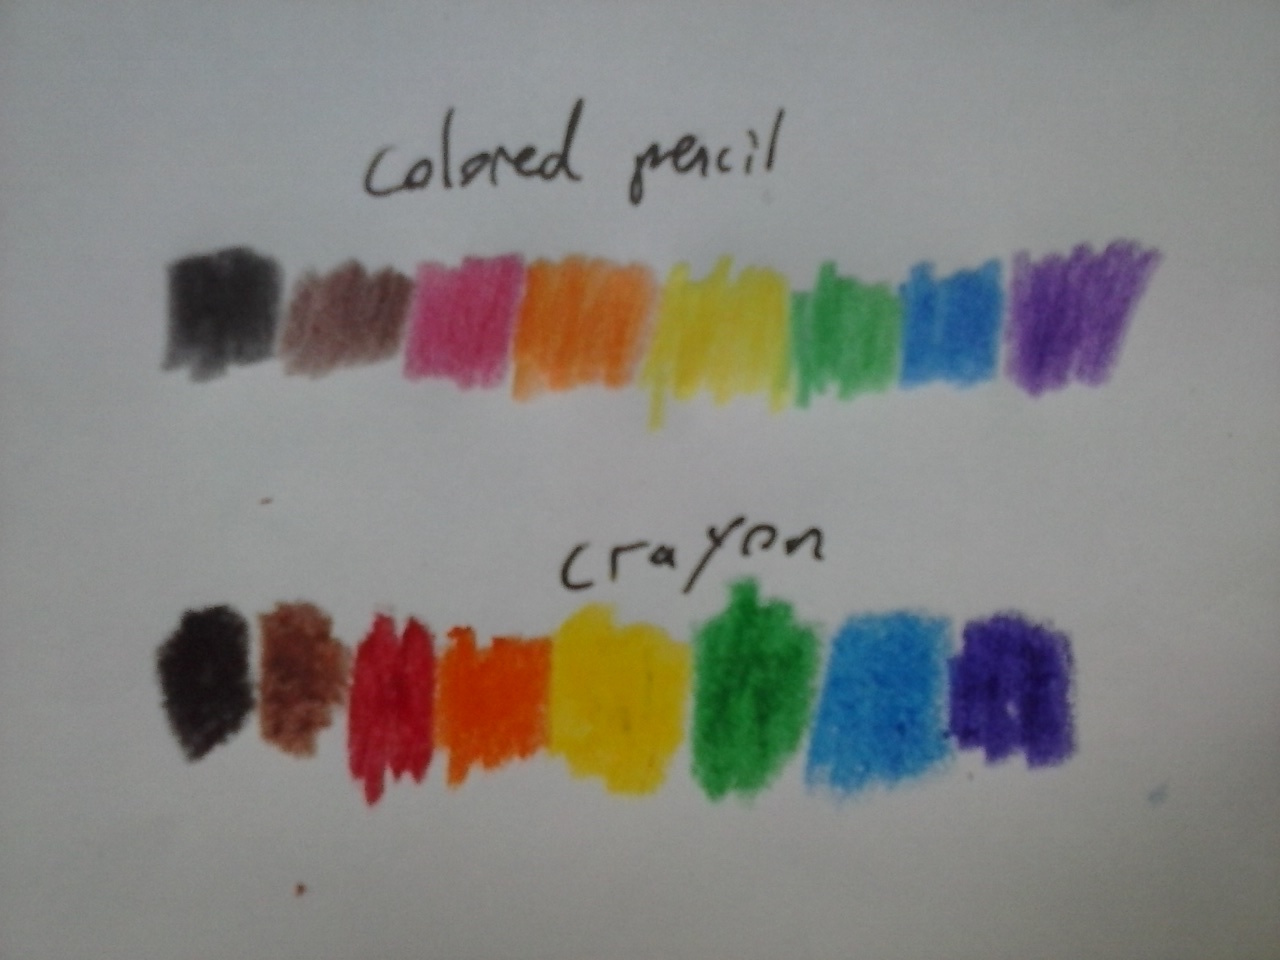 colored pencil
crayon